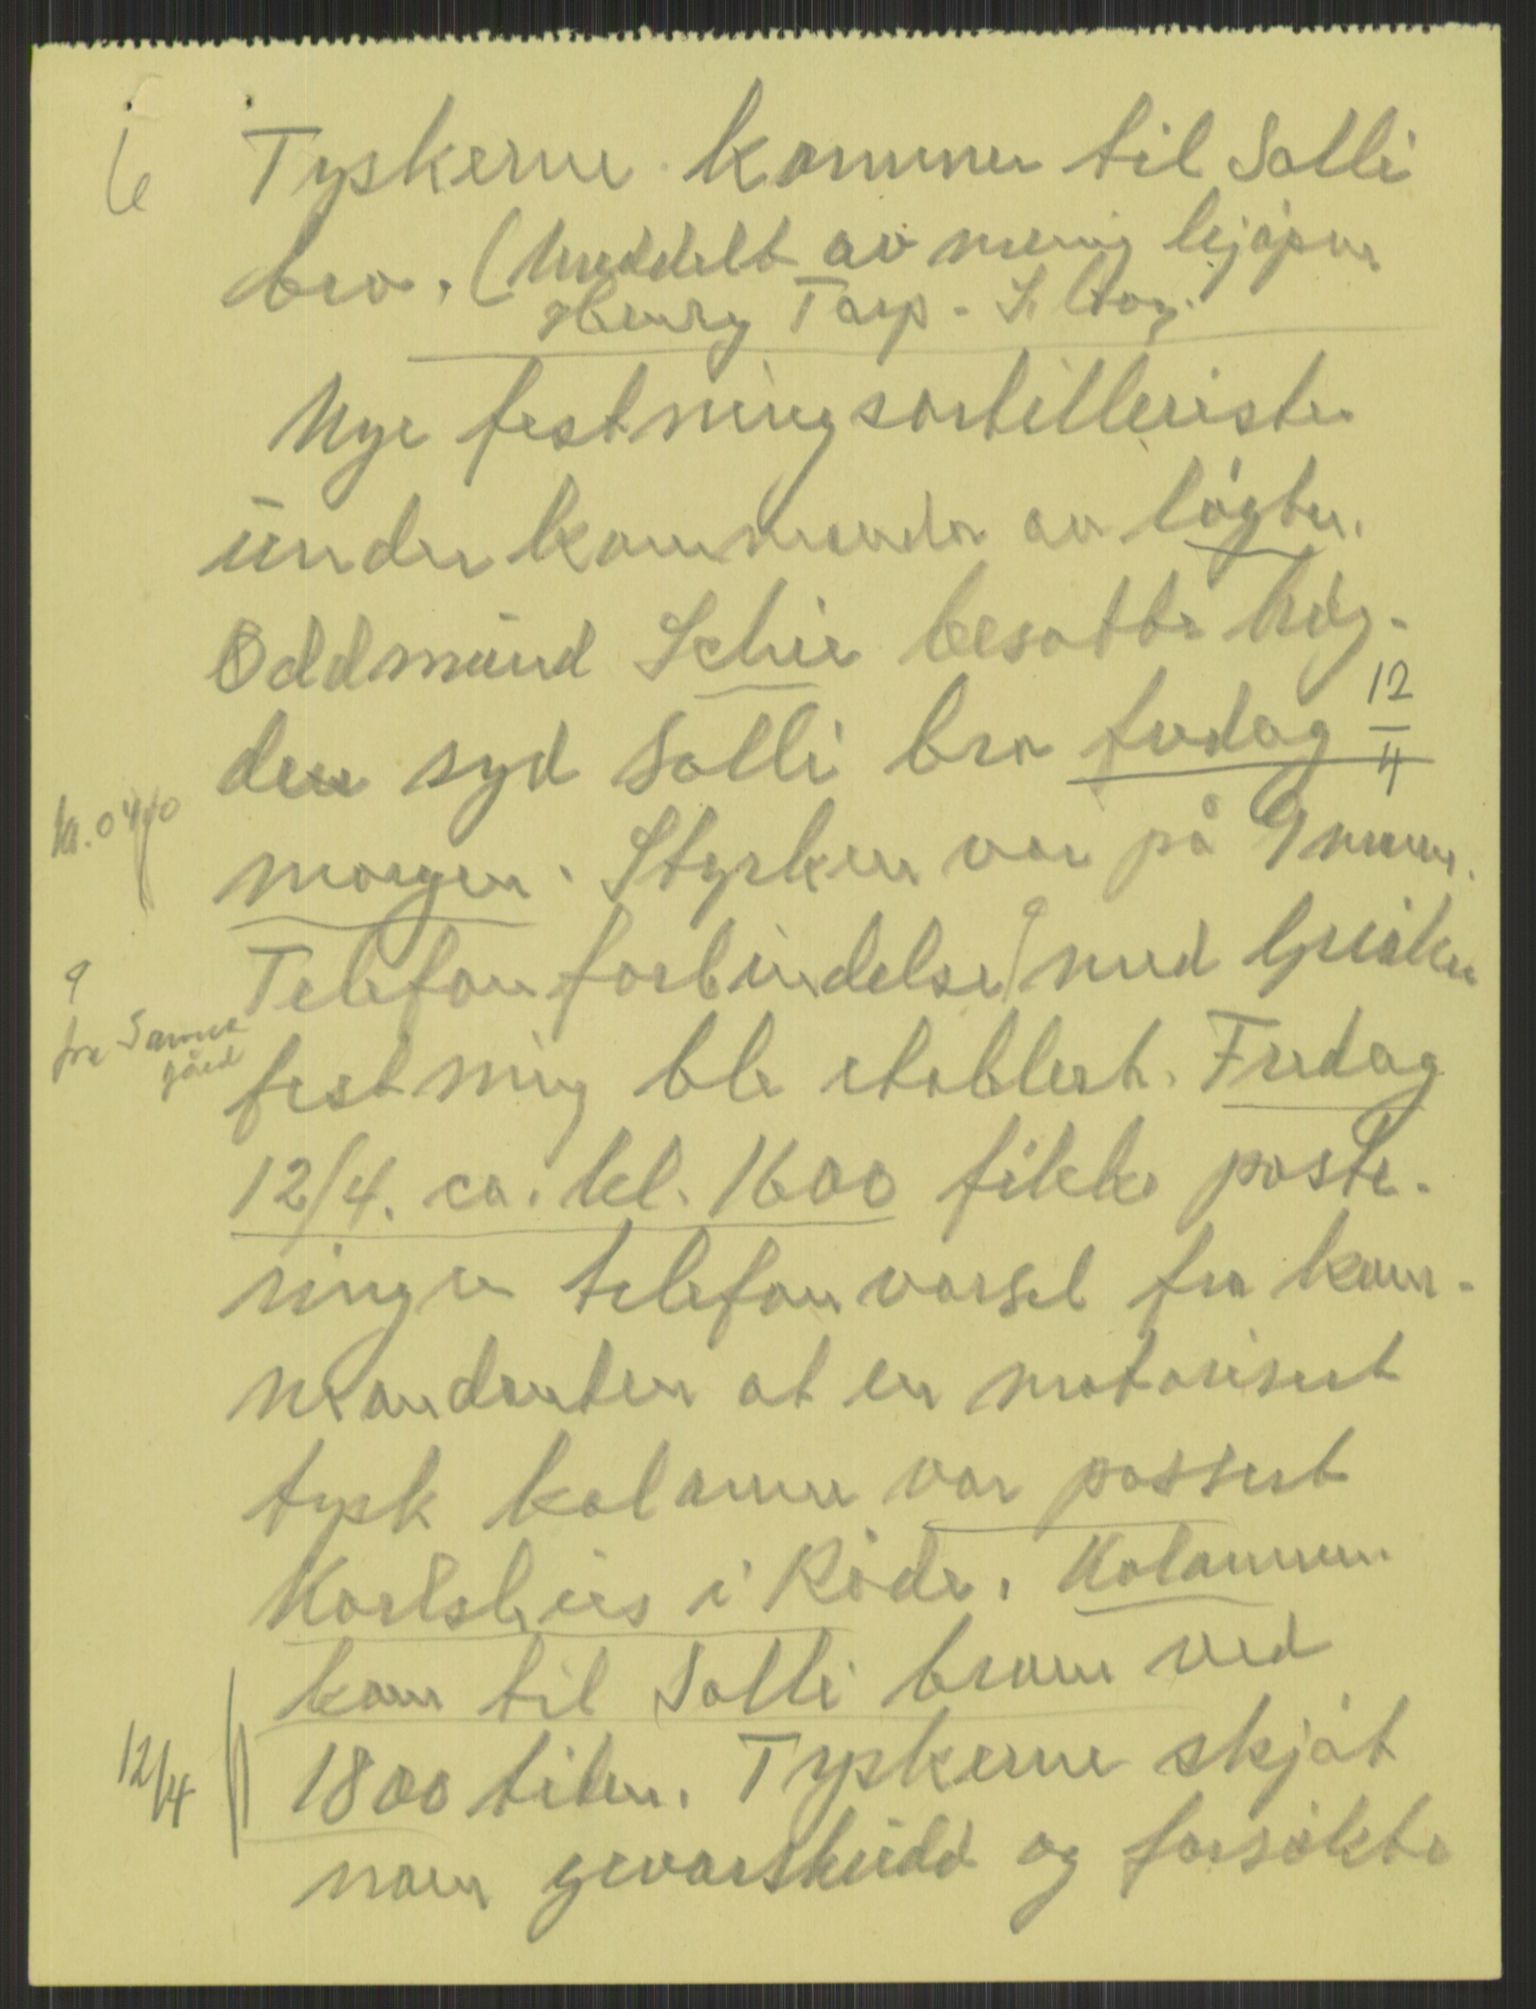 6
Tyskerne kommer til Solli
bro. (Meddelt av menig
Henry Tarp -
Nye festningsartillerister
under kommando av løytn.
Oddmund Schie besatte høg-
den syd Solli bro fredag 12/4
kl. 0400
morgen. Styrken var på 9 mann.
Telefonforbindelse med Greåker
fra Sanne
gård
festning ble etablert. Fredag
12/4. ca. kl. 1600 fikk poste-
ringen telefonvarsel fra kom-
mandanten at en motorisert
tysk kolonne var passert
Karlshus i Råde. Kolonnen
kom til Solli broen ved
12/4
1800 tiden. Tyskerne skjøt
noen geværskudd og forsøkte